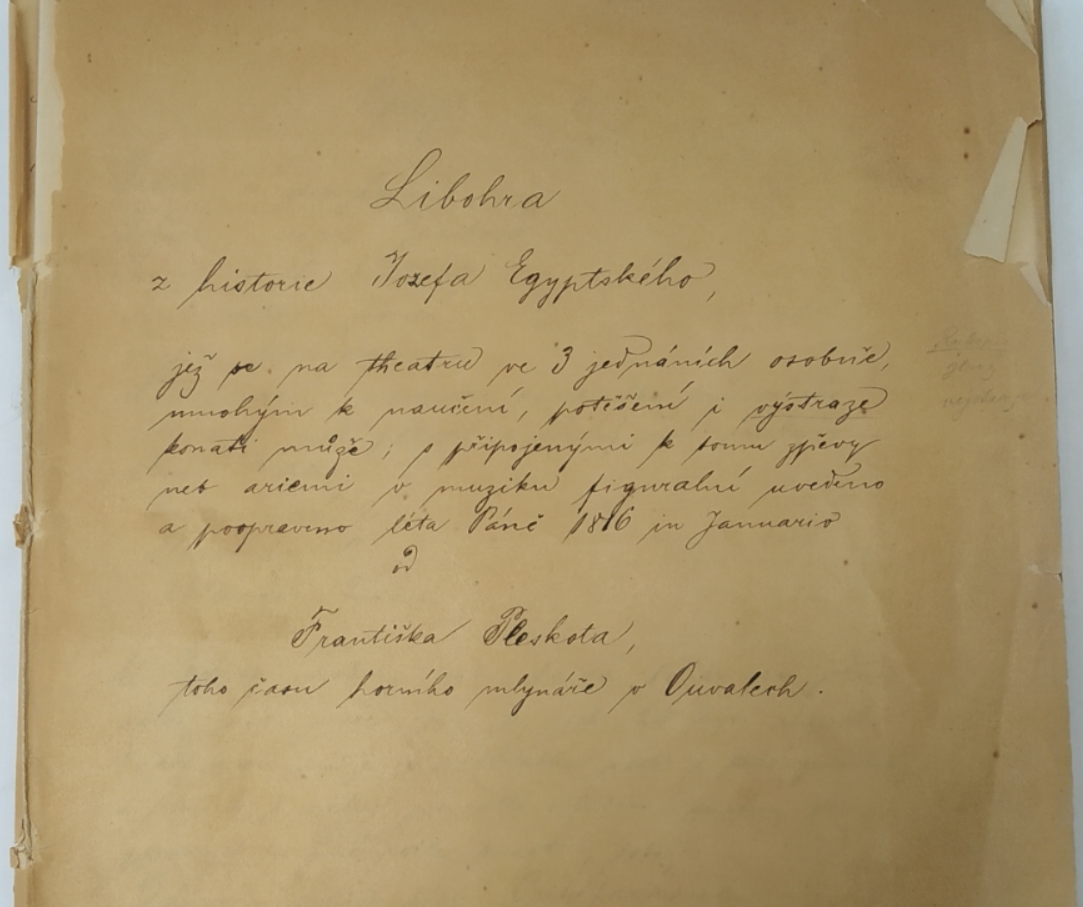 Libohra
z historie Jozefa Egyptského,
jež se na theatru ve 3 jednáních osobně,
mnohým k naučení, potěšení i výstraze
konati může; s připojenými k tomu zpěvy
neb ariemi v muziku figuralní uvedeno
a poopraveno léta Páně 1816 in Januario
od
Františka Pleskota,
toho času horního mlynáře v Ouvalech.